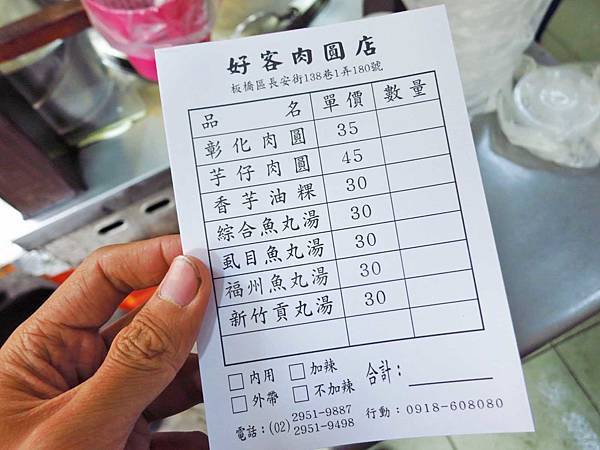 好客肉圓店
板橋區長安街138巷1弄180號
品名 單價 數量
彰化肉圓 35
芋仔肉圓 45
香芋油粿 30
綜合魚丸湯 30
虱目魚丸湯 30
福州魚丸湯 30
新竹貢丸湯 30
□內用 □加辣 合計:
□外帶 □不加辣
電話:(02) 2951-9887 行動:0918-608080
2951-9498